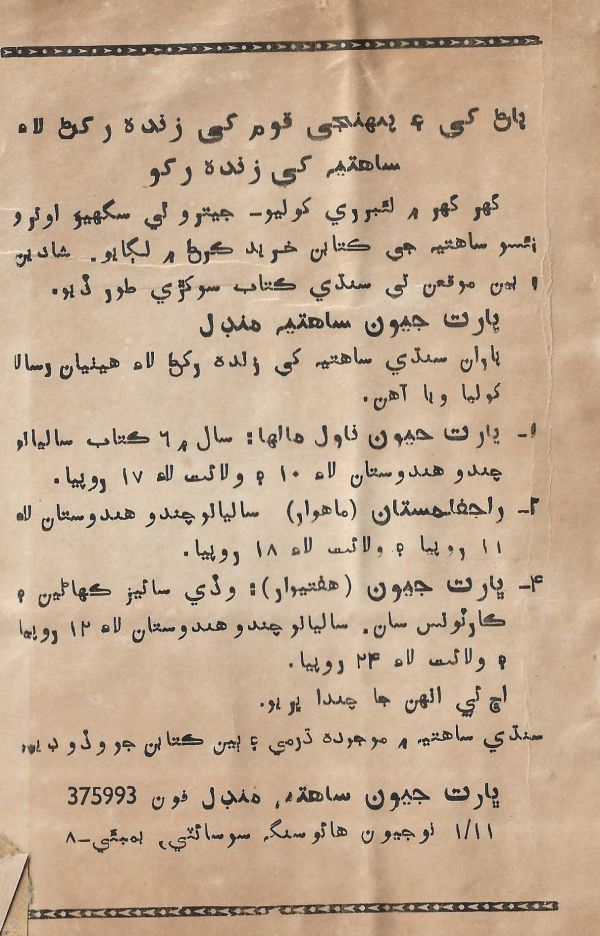 پاڻ کي ۽ پنهنجي قوم کي زنده رکڻ لاءِ
ساهتيہ کي زنده رکو
گهر گهر ۾ لئبرري کوليو۔ جيترو ٿي سگهيو اوترو
پئسو ساهتيہ جي کتابن خريد ڪرڻ ۾ لڳايو. شادين
۽ ٻين موقعن تي سنڌي ڪتاب سوکڙي طور ڏيو.
ڀارت جيون ساهتيہ منڊل
پاران سنڌي ساهتيہ کي زنده رکڻ لاءِ هيٺيان رسالا
کوليا ويا آهن.
۱۔ ڀارت جيون ناول مالها: سال ۾ ٦ ڪتاب ساليانو
چندو هندوستان لاءِ ۱۰ ۽ ولائت لاءِ ۱۷ روپيا.
۲۔ (ماهوار) ساليانو چندو هندوستان لاءِ
۱۱ روپيا ۽ ولائت لاءِ ۱۸ روپيا.
۳۔ ڀارت جيون (هفتيوار): وڏي سائيز ڪهاڻين ۽
ڪارٽونس سان. ساليانو چندو هندوستان لاءِ ۱۲ روپيا
۽ ولائت لاءِ ۲۴ روپيا.
اڄ ئي انهن جا چندا ڀريو.
سنڌي ساهتيہ ۾ موجوده ڌرمي ۽ ٻين ڪتابن جو وڏو
ڀارت جيون ساهتيہ منڊل فون 375993
۱/۱۱ نوجيون هائوسنگ سوسائٽي، بمبئي۔۸